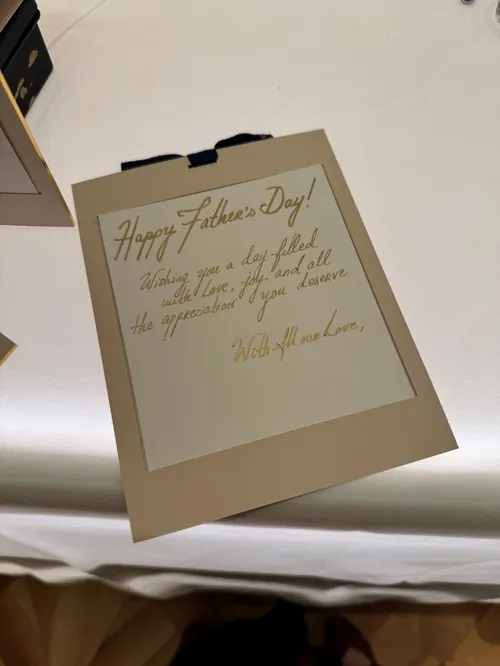 Happy Father's Day!
Wishing you a day filled
with love, joy and all
the appreciation you deserve
With All our Love,